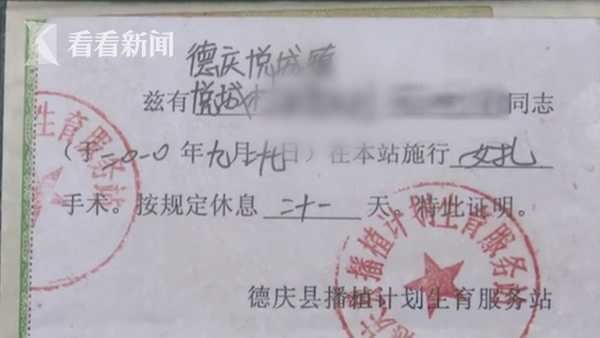 看看新闻
德庆悦城镇
兹有 悦城 同志
（于二〇一〇年九月十九日）在本站施行 女扎
手术。按规定休息 二十一 天。特此证明。
德庆县播植计划生育服务站
生育服务站
德庆县播植计划生育服务站